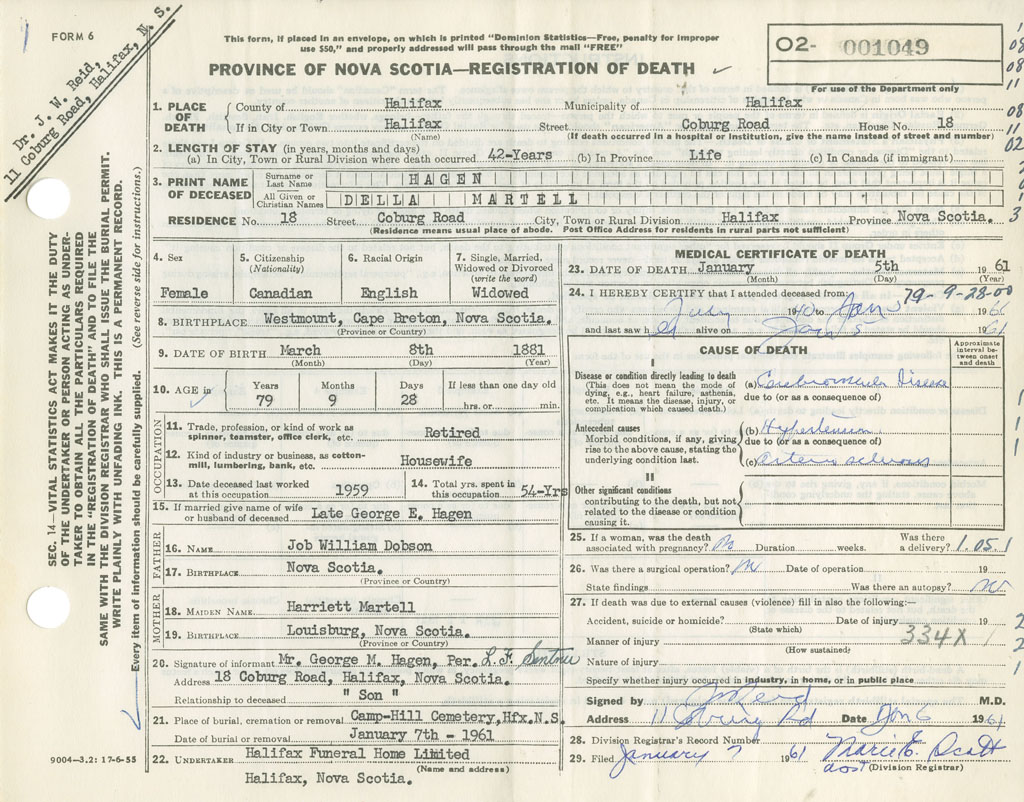 FORM 6
Dr. J. W. Reid,
11 Coburg Road, Halifax, N. S.
This form, if placed in an envelope, on which is printed "Dominion Statistics—Free, penalty for improper
use $50," and properly addressed will pass through the mail "FREE"
PROVINCE OF NOVA SCOTIA—REGISTRATION OF DEATH
O2- 001049
For use of the Department only
1. PLACE OF DEATH { County of Halifax Municipality of Halifax
If in City or Town Halifax Street Coburg Road House No. 18
(Name) (If death occurred in a hospital or institution, give the name instead of street and number)
2. LENGTH OF STAY (in years, months and days)
(a) In City, Town or Rural Division where death occurred 42-Years (b) In Province Life (c) In Canada (if immigrant)
3. PRINT NAME OF DECEASED { Surname or Last Name HAGEN
All Given or Christian Names DELLA MARTELL
RESIDENCE No. 18 Street Coburg Road City, Town or Rural Division Halifax Province Nova Scotia.
(Residence means usual place of abode. Post Office Address for residents in rural parts not sufficient)
4. Sex
Female
5. Citizenship
(Nationality)
Canadian
6. Racial Origin
English
7. Single, Married,
Widowed or Divorced
(write the word)
Widowed
8. BIRTHPLACE Westmount, Cape Breton, Nova Scotia.
(Province or Country)
9. DATE OF BIRTH March 8th 1881
(Month) (Day) (Year)
10. AGE in Years Months Days If less than one day old
79 9 28 hrs. or min.
OCCUPATION
11. Trade, profession, or kind of work as
spinner, teamster, office clerk, etc. Retired
12. Kind of industry or business, as cotton-
mill, lumbering, bank, etc. Housewife
13. Date deceased last worked
at this occupation 1959
14. Total yrs. spent in
this occupation 54-Yrs
15. If married give name of wife
or husband of deceased Late George E. Hagen
FATHER
16. NAME Job William Dobson
17. BIRTHPLACE Nova Scotia.
(Province or Country)
MOTHER
18. MAIDEN NAME Harriett Martell
19. BIRTHPLACE Louisburg, Nova Scotia.
(Province or Country)
20. Signature of informant Mr. George M. Hagen, Per. L. F.
Address 18 Coburg Road, Halifax, Nova Scotia.
Relationship to deceased " Son "
21. Place of burial, cremation or removal Camp-Hill Cemetery, Hfx, N.S.
Date of burial or removal January 7th - 1961
22. UNDERTAKER Halifax Funeral Home Limited
(Name and address)
Halifax, Nova Scotia.
MEDICAL CERTIFICATE OF DEATH
23. DATE OF DEATH January 5th 1961
(Month) (Day) (Year)
24. I HEREBY CERTIFY that I attended deceased from: 79-9-28-00
July 1940 to Jan 5 1961
and last saw her alive on Jan 5 1961
CAUSE OF DEATH
Approximate
interval be-
tween onset
and death
I
Disease or condition directly leading to death
(This does not mean the mode of
dying, e.g., heart failure, asthenia,
etc. It means the disease, injury, or
complication which caused death.)
(a) Cerebrovascular Disease
due to (or as a consequence of)
Antecedent causes
Morbid conditions, if any, giving
rise to the above cause, stating the
underlying condition last.
(b) Hypertension
due to (or as a consequence of)
(c) Arteriosclerosis
II
Other significant conditions
contributing to the death, but not
related to the disease or condition
causing it.
25. If a woman, was the death
associated with pregnancy? No Duration weeks. Was there
a delivery? 1.05.1
26. Was there a surgical operation? No Date of operation 19
State findings Was there an autopsy? No
27. If death was due to external causes (violence) fill in also the following:—
Accident, suicide or homicide? Date of injury 19
(State which)
Manner of injury 334X
(How sustained)
Nature of injury
Specify whether injury occurred in industry, in home, or in public place
Signed by JW Reid M.D.
Address 11 Coburg Rd Date Jan 6 1961
28. Division Registrar's Record Number
29. Filed January 7 1961 Marie E. Scott
(Division Registrar)
SEC. 14—VITAL STATISTICS ACT MAKES IT THE DUTY
OF THE UNDERTAKER OR PERSON ACTING AS UNDER-
TAKER TO OBTAIN ALL THE PARTICULARS REQUIRED
IN THE "REGISTRATION OF DEATH" AND TO FILE THE
SAME WITH THE DIVISION REGISTRAR WHO SHALL ISSUE THE BURIAL PERMIT.
WRITE PLAINLY WITH UNFADING INK. THIS IS A PERMANENT RECORD.
Every item of information should be carefully supplied. (See reverse side for instructions.)
9004—3.2: 17-6-55